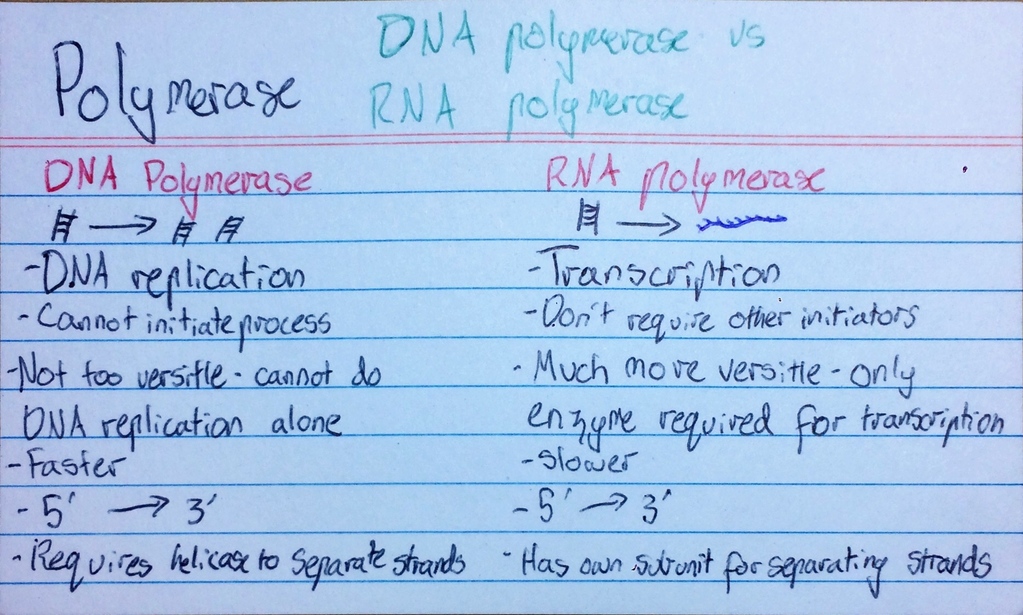 Polymerase
DNA polymerase vs
RNA polymerase
DNA Polymerase
-DNA replication
-Cannot initiate process
-Not too versitle - cannot do
DNA replication alone
-Faster
-5' → 3'
-Requires helicase to separate strands
RNA polymerase
-Transcription
-Don't require other initiators
-Much more versitle - only
enzyme required for transcription
-Slower
-5' → 3'
-Has own subunit for separating strands